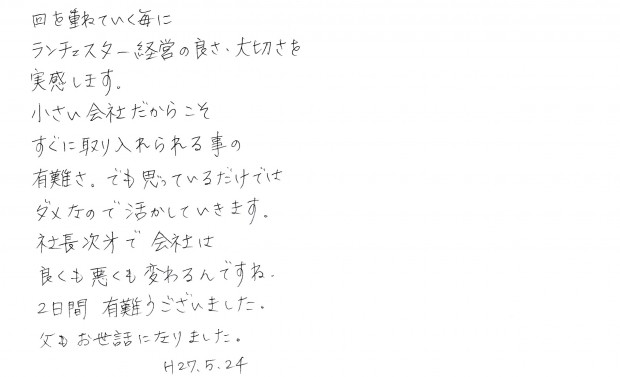 回を重ねていく毎に
ランチェスター経営の良さ、大切さを
実感します。
小さい会社だからこそ
すぐに取り入れられる事の
有難さ。でも思っているだけでは
ダメなので活かしていきます。
社長次才で会社は
良くも悪くも変わるんですね。
2日間 有難うございました。
父もお世話になりました。
H27.5.24